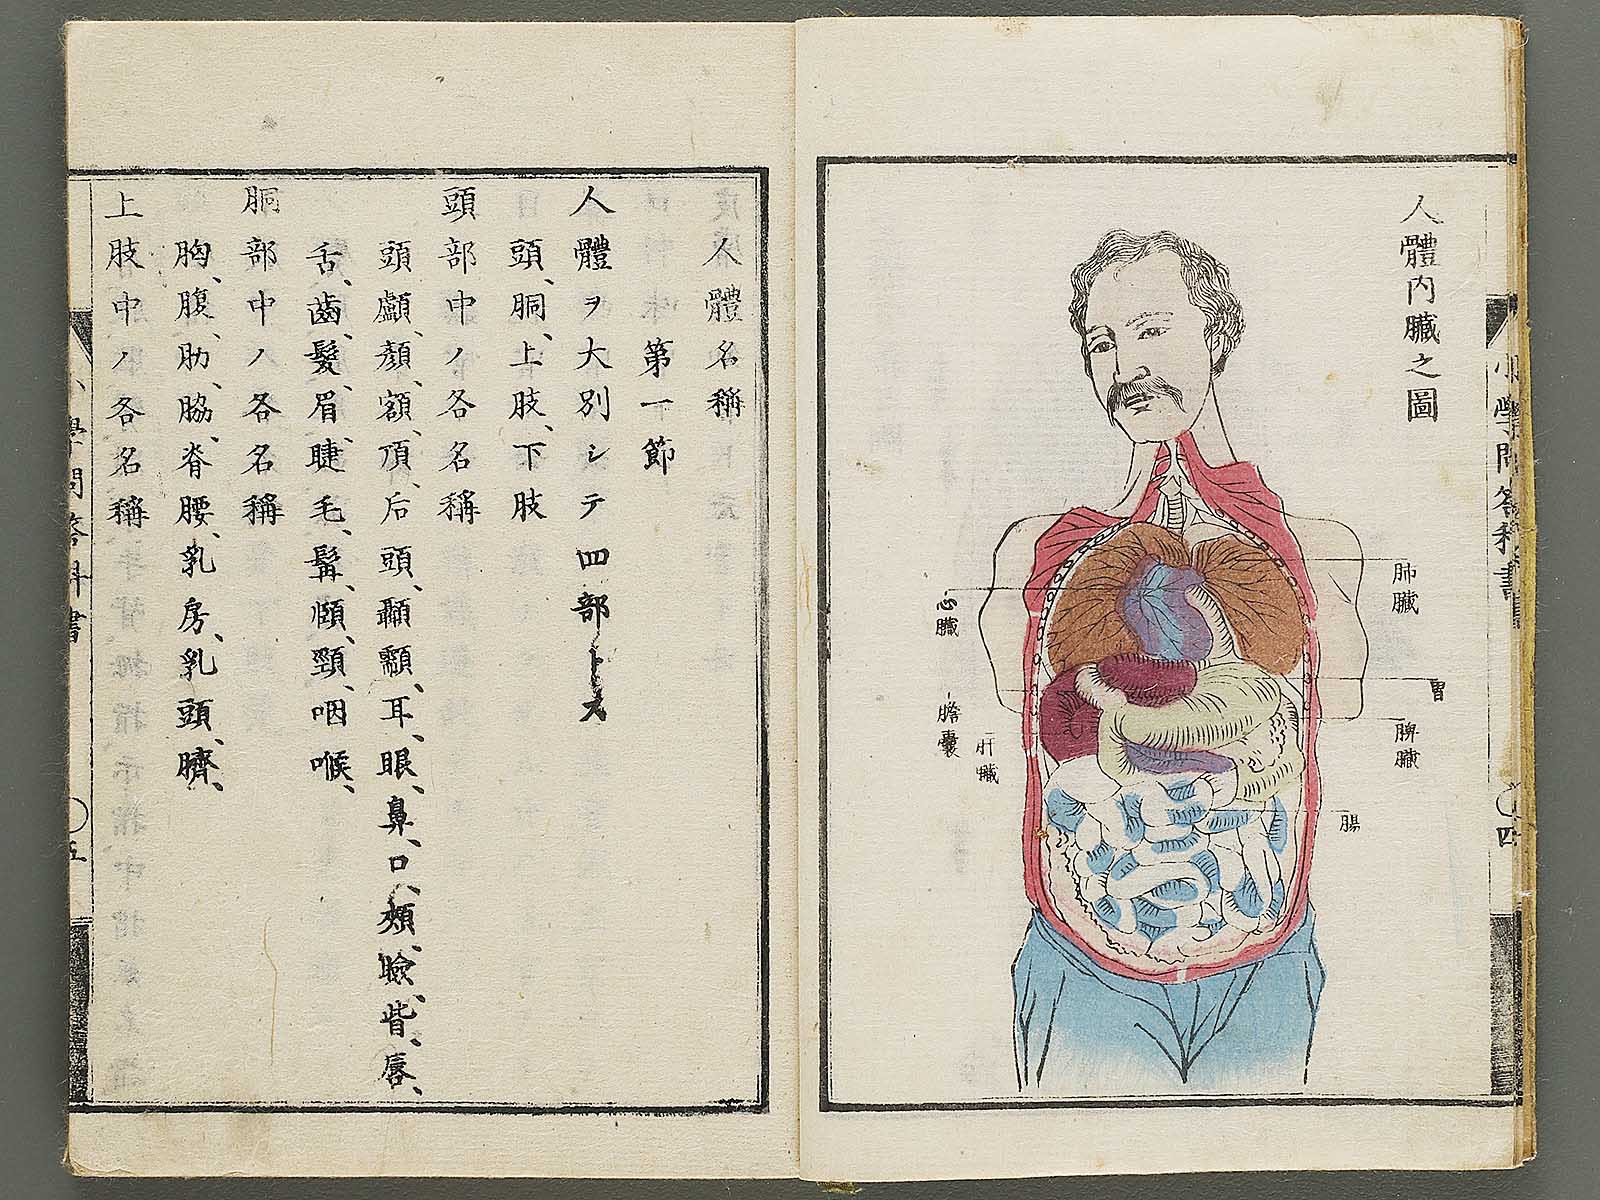 人體內臟之圖
肺臟
胃
脾臟
腸
心臟
膽囊
肝臟
四
人體名稱
第一節
人體ヲ大別シテ四部トス
頭、胴、上肢、下肢
頭部中ノ各名稱
頭顱、顏、額、頂、后頭、顳顬、耳、眼、鼻、口、頰、瞼、眥、唇、
舌、齒、髮、眉、睫毛、髯、頤、頸、咽喉、
胴部中ノ各名稱
胸、腹、肋、脇、脊、腰、乳房、乳頭、臍、
上肢中ノ各名稱
五